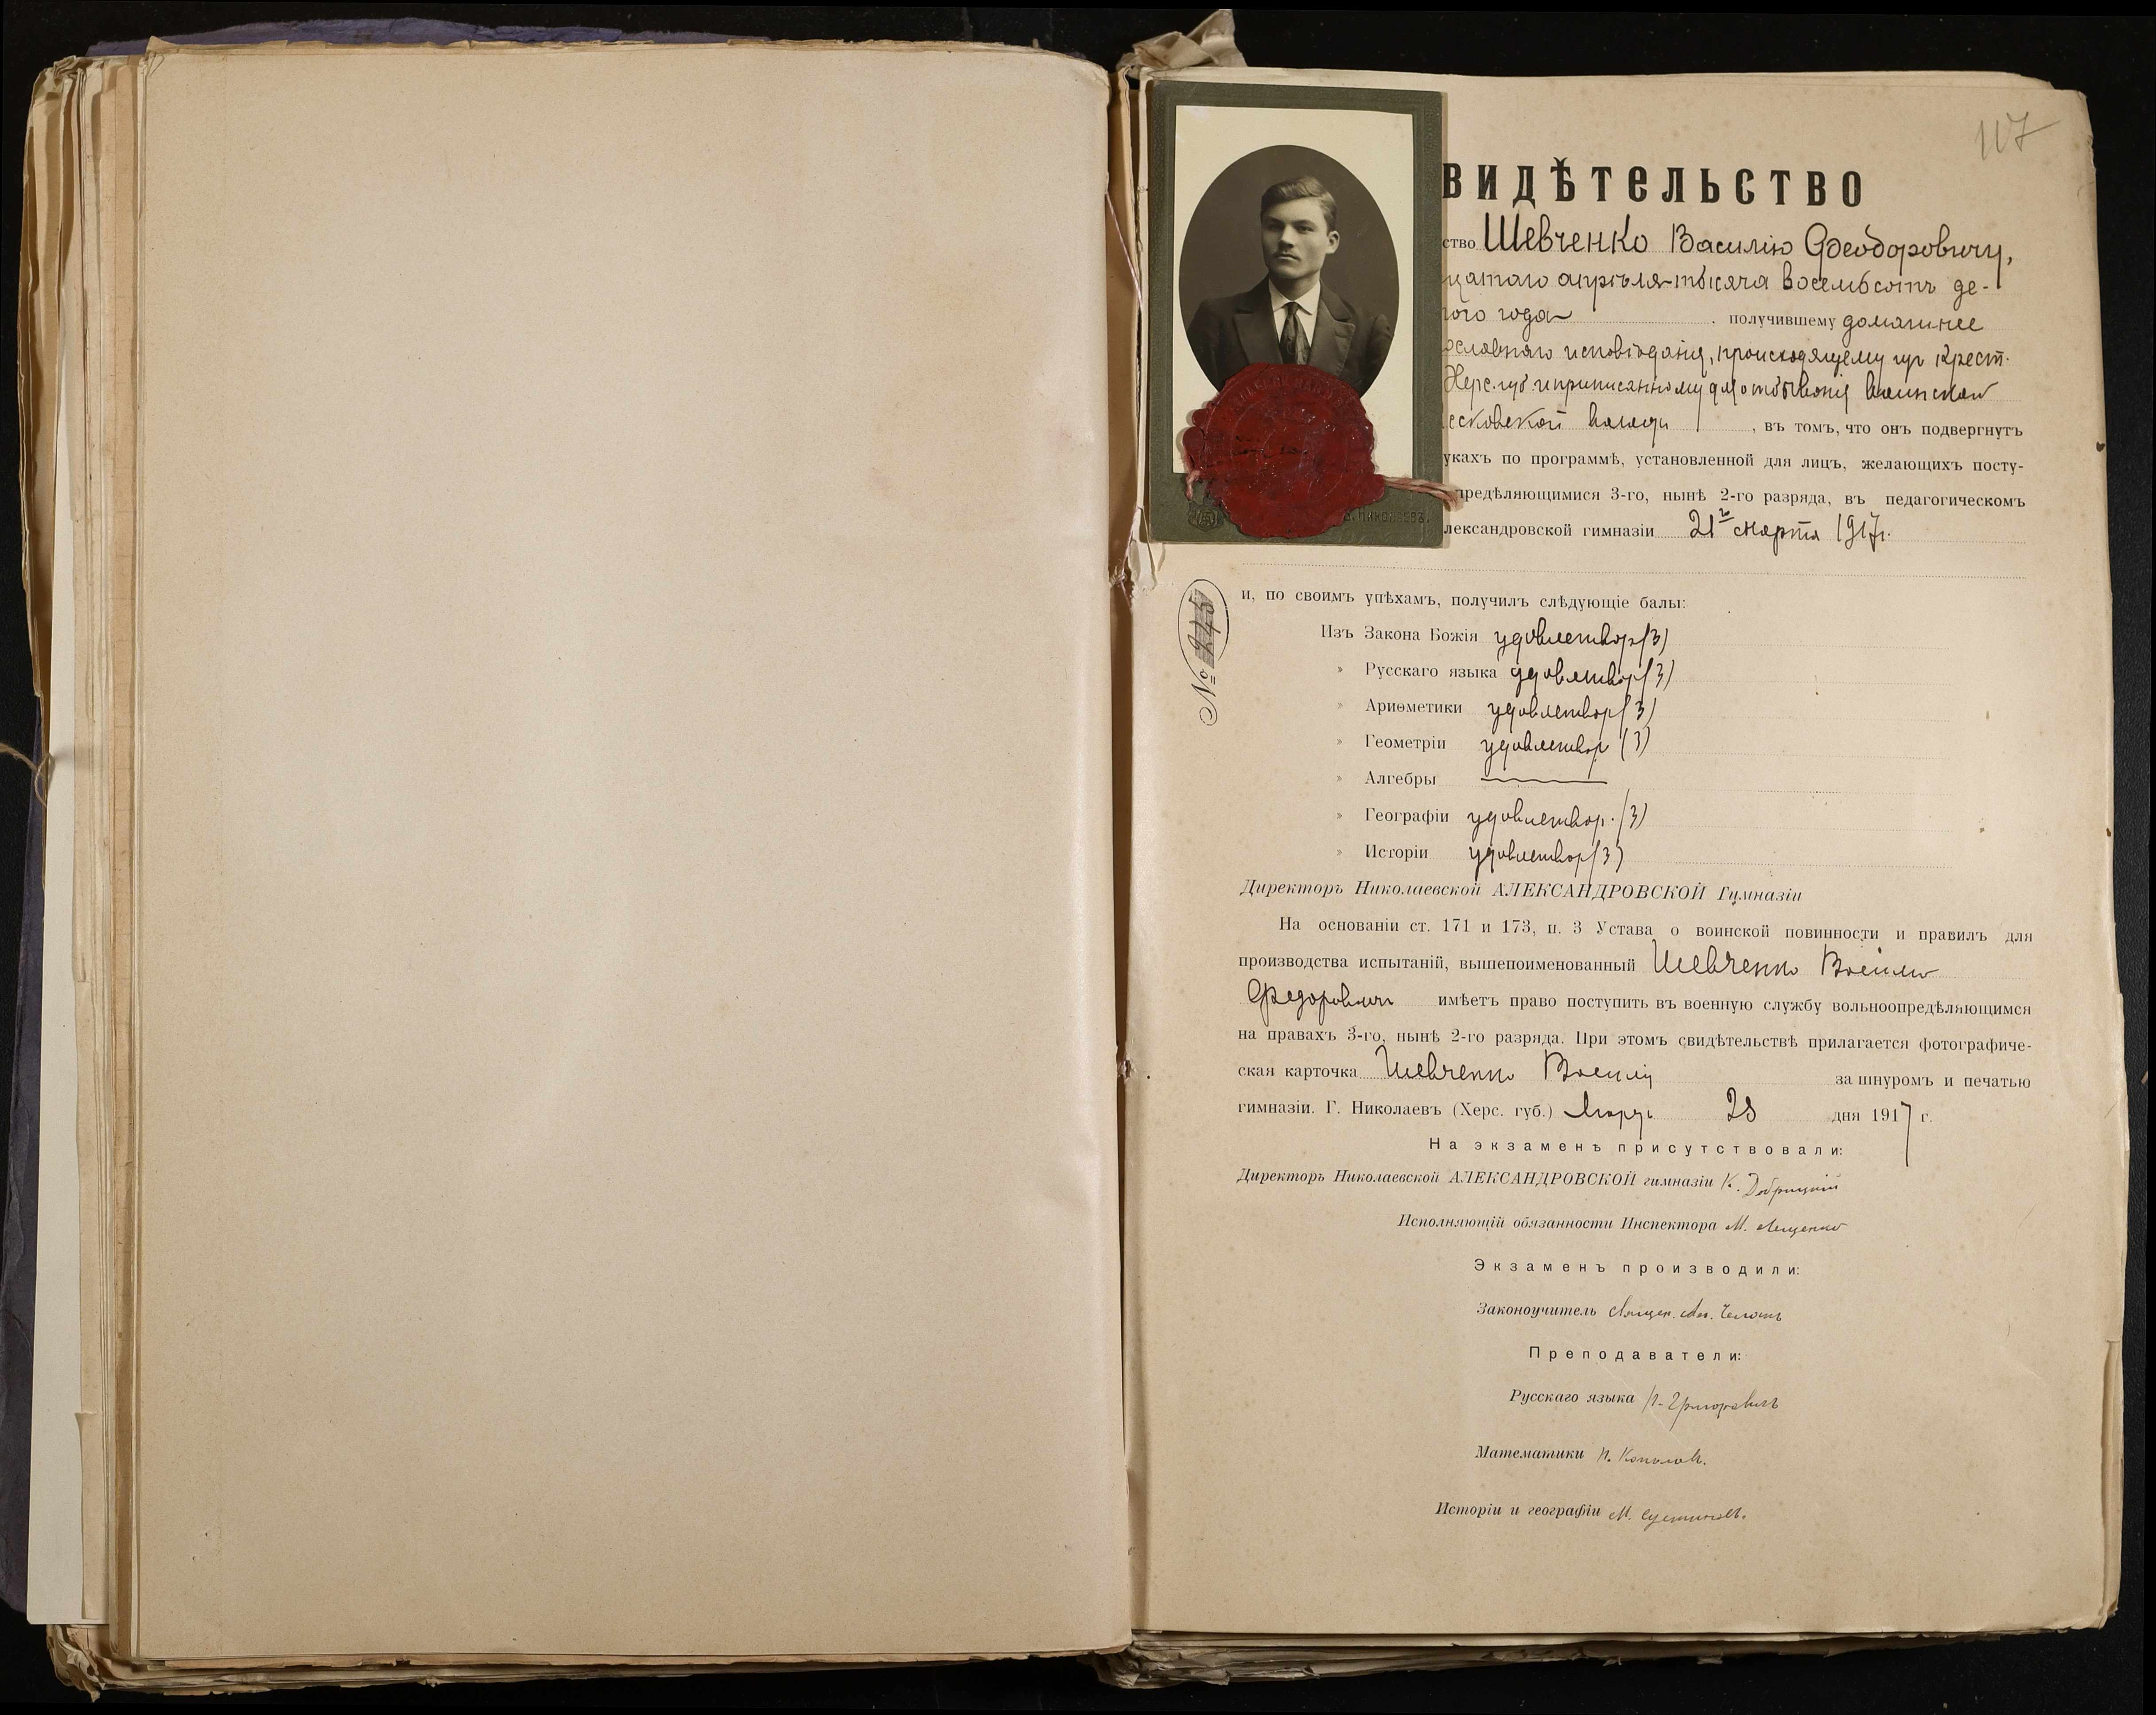 117
видѣтельство
ство Шевченко Василію Ѳеодоровичу,
цатаго апрѣля тысяча восемьсотъ де-
того года , получившему домашнее
ославнаго исповѣданія, происходящему изъ крест.
Херс. губ. и приписанному для отбыванія воинской
есковской волости , въ томъ, что онъ подвергнутъ
укахъ по программѣ, установленной для лицъ, желающихъ посту-
предѣляющимися 3-го, нынѣ 2-го разряда, въ педагогическомъ
лександровской гимназіи 21го марта 1917г.
Николаевъ.
№ 245
и, по своимъ успѣхамъ, получилъ слѣдующіе балы:
Изъ Закона Божія удовлетвор(3)
» Русскаго языка удовлетвор(3)
» Ариѳметики удовлетвор(3)
» Геометріи удовлетвор (3)
» Алгебры
» Географіи удовлетвор. (3)
» Исторіи удовлетвор(3)
Директоръ Николаевской АЛЕКСАНДРОВСКОЙ Гимназіи
На основаніи ст. 171 и 173, п. 3 Устава о воинской повинности и правилъ для
производства испытаній, вышепоименованный Шевченко Василій
Ѳедоровичъ имѣетъ право поступить въ военную службу вольноопредѣляющимся
на правахъ 3-го, нынѣ 2-го разряда. При этомъ свидѣтельствѣ прилагается фотографиче-
ская карточка Шевченко Василія за шнуромъ и печатью
гимназіи. Г. Николаевъ (Херс. губ.) Марта 28 дня 1917 г.
На экзаменѣ присутствовали:
Директоръ Николаевской АЛЕКСАНДРОВСКОЙ гимназіи К. Добрицкій
Исполняющій обязанности Инспектора М. Лещенко
Экзаменъ производили:
Законоучитель Священ.
Преподаватели:
Русскаго языка П. Григоровичъ
Математики
Исторіи и географіи М.